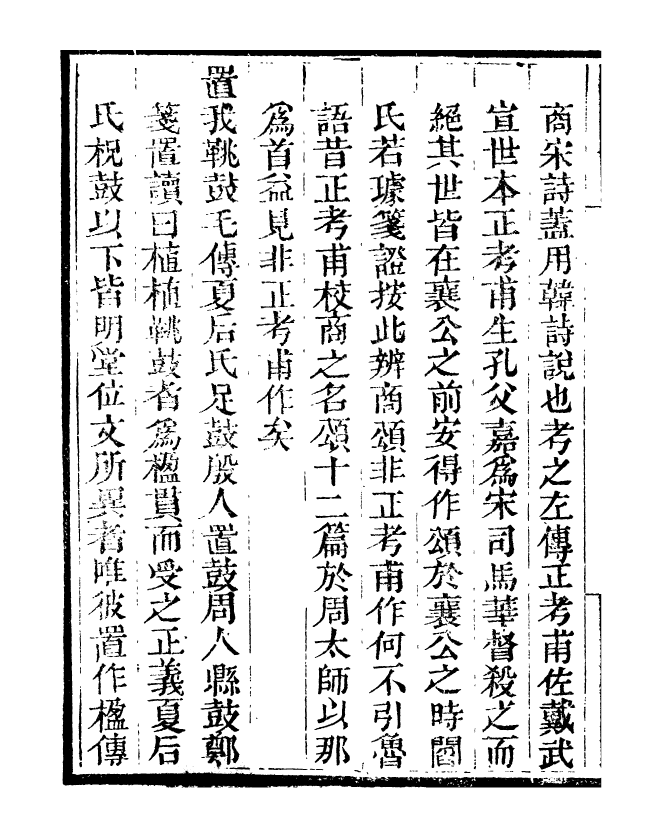 商宋詩蓋用韓詩說也考之左傳正考甫佐戴武
宣世本正考甫生孔父嘉爲宋司馬華督殺之而
絕其世皆在襄公之前安得作頌於襄公之時閻
氏若璩箋證按此辨商頌非正考甫作何不引魯
語昔正考甫校商之名頌十二篇於周太師以那
爲首益見非正考甫作矣
置我鞉鼓毛傳夏后氏足鼓殷人置鼓周人縣鼓鄭
箋置讀曰植植鞉鼓者爲楹貫而受之正義夏后
氏柷鼓以下皆明堂位文所異者唯彼置作楹傳